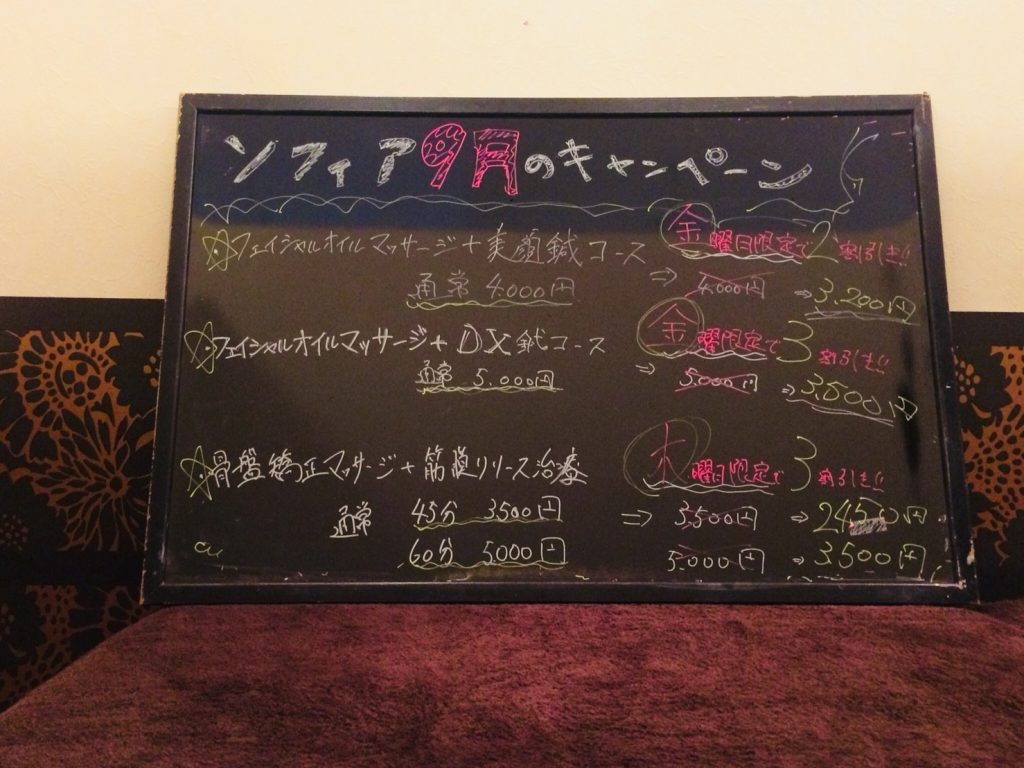 ソフィア9月のキャンペーン
☆フェイシャルオイルマッサージ+美顔鍼コース 金曜日限定で2割引き!!
通常 4.000円 ⇒ 4.000円 ⇒3.200円
☆フェイシャルオイルマッサージ+DX鍼コース 金曜限定で3割引き!!
通常 5.000円 ⇒ 5.000円 ⇒3.500円
☆骨盤矯正マッサージ+筋膜リリース治療 木曜日限定で3割引き!!
通常 45分 3500円 ⇒ 3.500円 ⇒2450円
60分 5000円 5.000円 ⇒3.500円